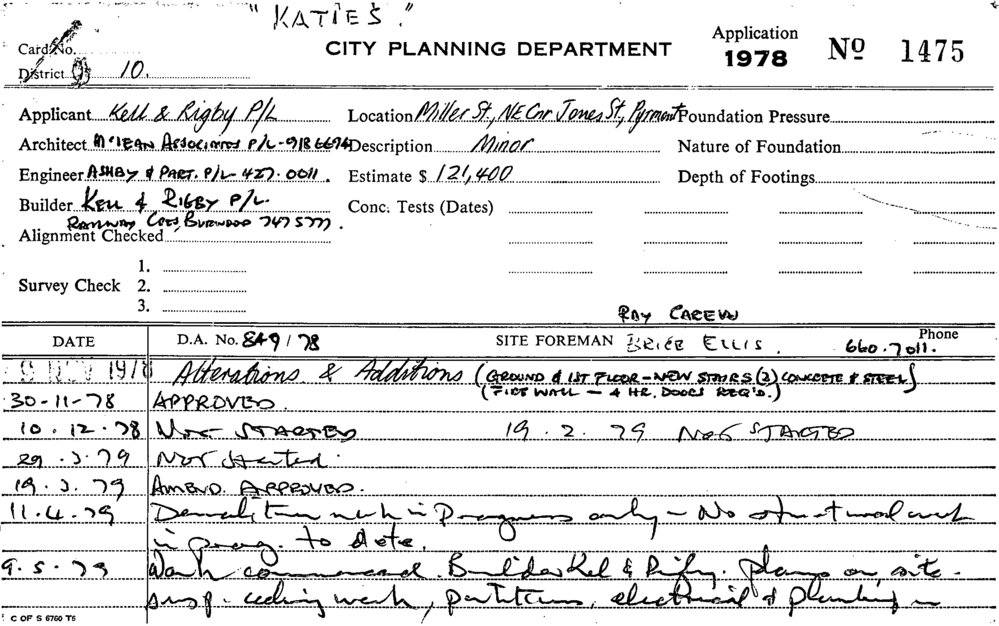 "KATIES."
Card No.
CITY PLANNING DEPARTMENT
Application
1978
No 1475
District 9 10.
Applicant Kell & Rigby P/L
Location Miller St., NE Cnr Jones St, Pyrmont
Foundation Pressure
Architect McLEAN ASSOCIATES P/L - 918 6694
Description Minor
Nature of Foundation
Engineer ASHBY & PART. P/L 427.0011.
Estimate $ 121,400
Depth of Footings
Builder KELL & RIGBY P/L.
Conc. Tests (Dates)
RAILWAY CRES, BURWOOD 747 5777.
Alignment Checked
1.
Survey Check 2.
3.
RAY CAREW
DATE
D.A. No. 849/78
SITE FOREMAN BRICE ELLIS.
Phone
660.7011.
9 NOV 1978 Alterations & Additions (GROUND & 1ST FLOOR - NEW STAIRS (2) CONCRETE & STEEL)
(FIRE WALL - 4 HR. DOORS REQ'D.)
30-11-78 APPROVED.
10.12.78 NOT STARTED 19.2.79 NOT STARTED
29.3.79 Not started.
19.3.79 AMEND. APPROVED.
11.4.79 Demolition work in Progress only - No structural work
in prog. to date.
9.5.79 Work commenced. Builder Kel & Rigby. plans on site.
susp. ceiling work, partitions, electrical & plumbing in
C OF S 6760 T6